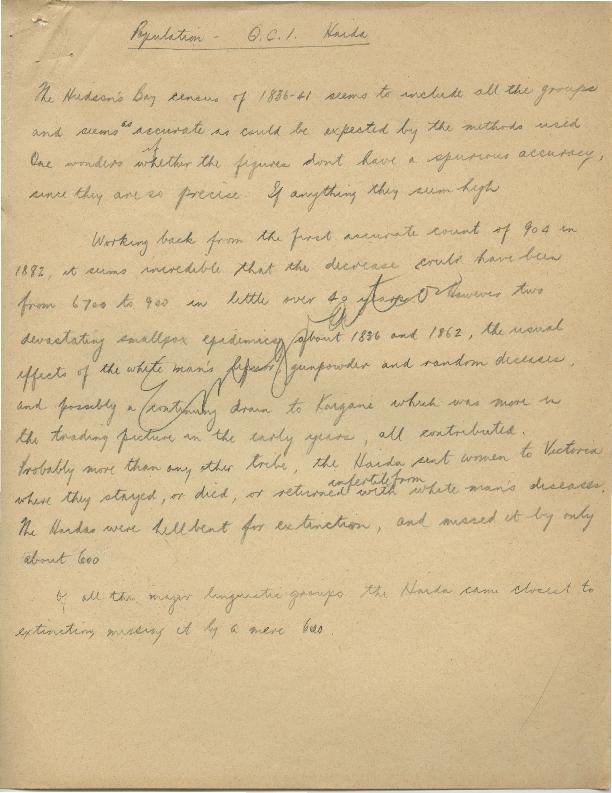 Population - Q.C.I. Haida
The Hudson's Bay census of 1836-41 seems to include all the groups
and seems as accurate as could be expected by the methods used.
One wonders if whether the figures dont have a spurious accuracy,
since they are so precise. If anything they seem high
Working back from the first accurate count of 904 in
1882, it seems incredible that the decrease could have been
from 6700 to 900 in little over 40 years. However two
devastating smallpox epidemics, about 1836 and 1862, the usual
effects of the white man's liquor, gunpowder and random diseases,
and possibly a continuing drain to Kaigani which was more in
the trading picture in the early years, all contributed.
Probably more than any other tribe, the Haida sent women to Victoria
where they stayed, or died, or returned with infertile from white man's diseases.
The Haidas were hellbent for extinction, and missed it by only
about 600
Of all the major linguistic groups the Haida came closest to
extinction, missing it by a mere 600.